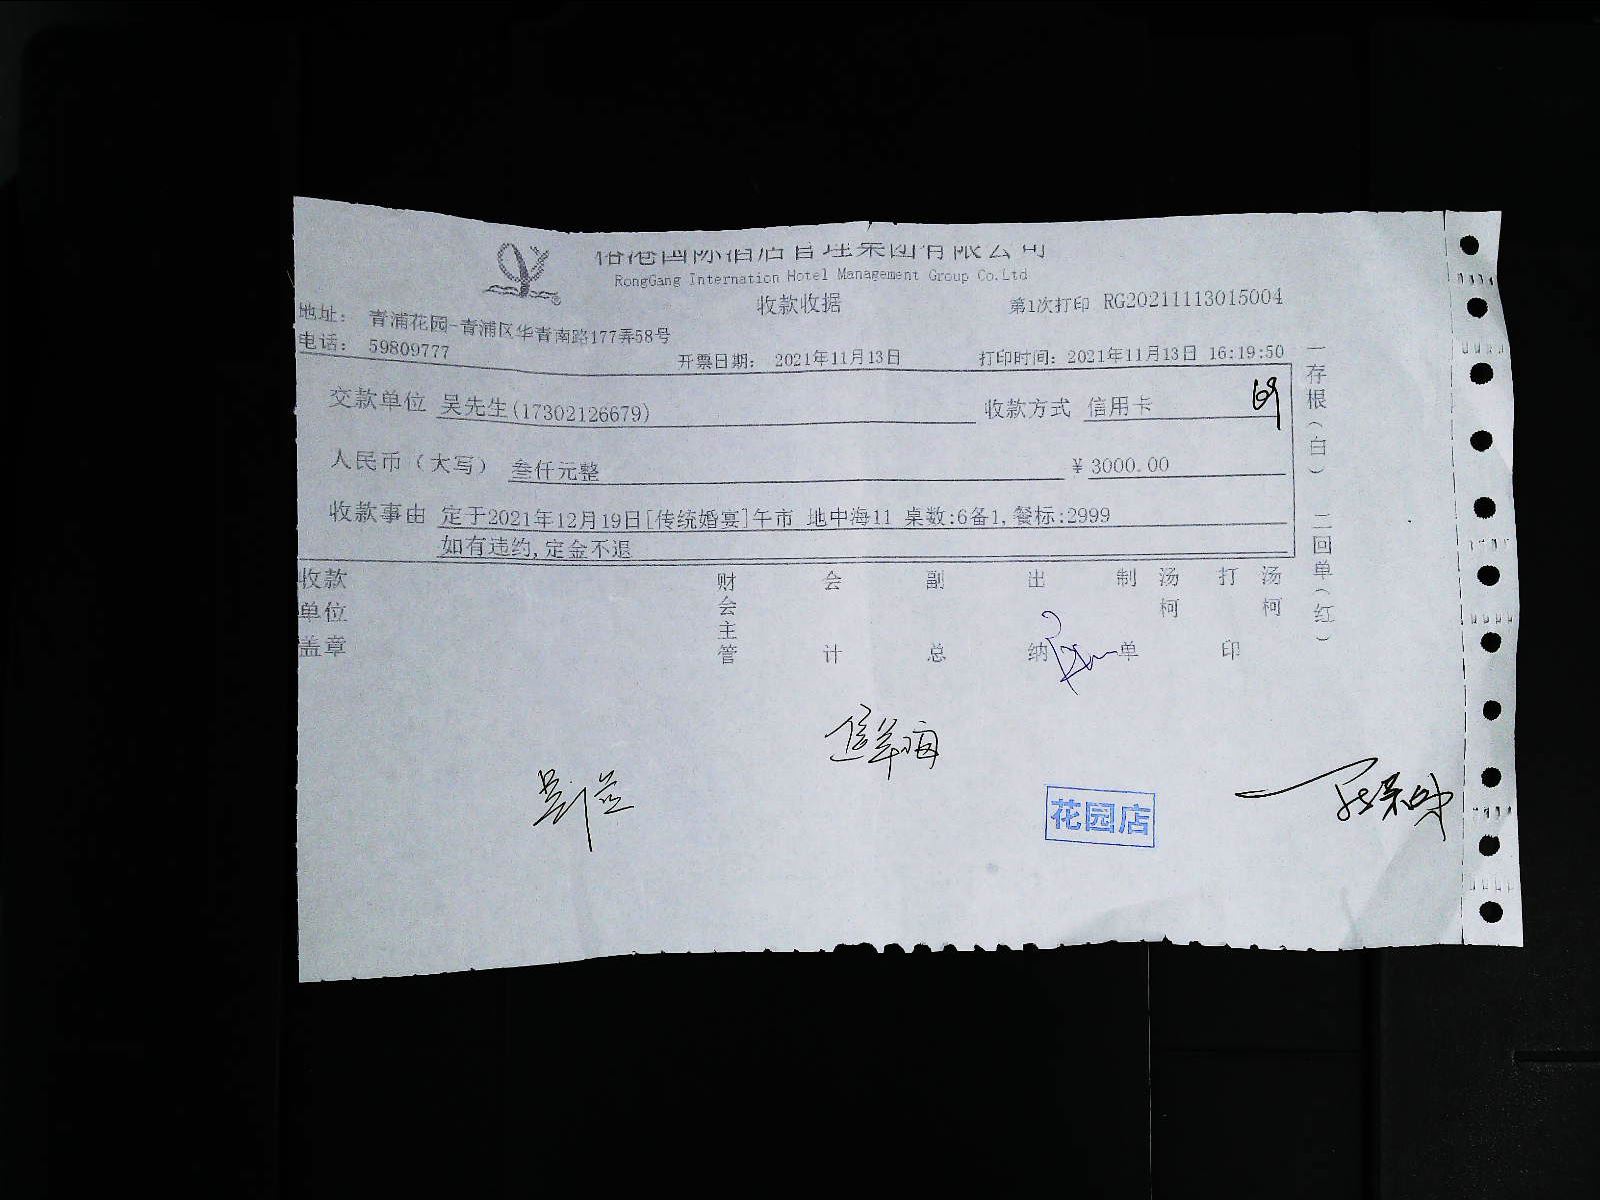 国际酒店管理集团有限公司
RongGang Internation Hotel Management Group Co.Ltd
收款收据
第1次打印 RG20211113015004
地址： 青浦花园-青浦区华青南路177弄58号
电话： 59809777
开票日期： 2021年11月13日
打印时间：2021年11月13日 16:19:50
交款单位 吴先生(17302126679)
收款方式 信用卡
人民币（大写） 叁仟元整
¥ 3000.00
收款事由 定于2021年12月19日[传统婚宴]午市 地中海11 桌数:6备1,餐标:2999
如有违约,定金不退
收款单位盖章
财会主管
会计
副总
出纳
制单
汤柯
打印
汤柯
一存根（白） 二回单（红）
花园店